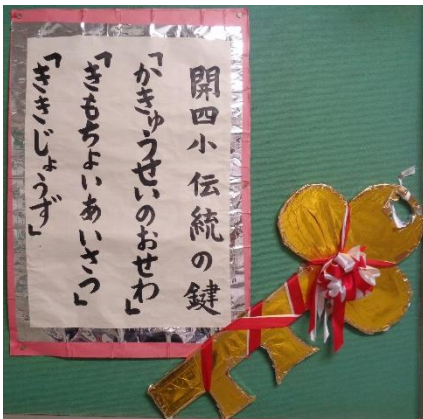 開四小伝統の鍵
「かきゅうせいのおせわ」
「きもちよいあいさつ」
「ききじょうず」